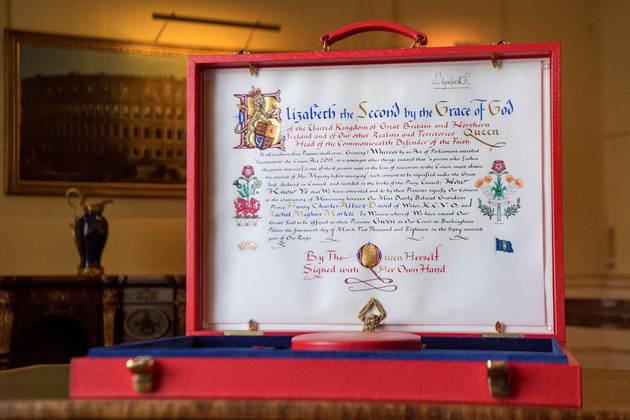 Elizabeth R
Elizabeth the Second by the Grace of God
of the United Kingdom of Great Britain and Northern
Ireland and of Our other Realms and Territories Queen
Head of the Commonwealth Defender of the Faith
To all to whom these Presents shall come Greeting! Whereas by an Act of Parliament entitled
Succession to the Crown Act 2013, it is amongst other things enacted that "a person who (when
the person marries) is one of the 6 persons next in the line of succession to the Crown must obtain
the consent of Her Majesty before marrying", such consent to be signified under the Great
Seal, declared in Council, and recorded in the books of the Privy Council; Now
Know Ye that We have consented and do by these Presents signify Our Consent
to the contracting of Matrimony between Our Most Dearly Beloved Grandson
Prince Henry Charles Albert David of Wales, K.C.V.O., and
Rachel Meghan Markle In Witness whereof We have caused Our
Great Seal to be affixed to these Presents Given at Our Court at Buckingham
Palace the fourteenth day of March Two Thousand and Eighteen in the Sixty seventh
year of Our Reign
By The Queen Herself
Signed with Her Own Hand